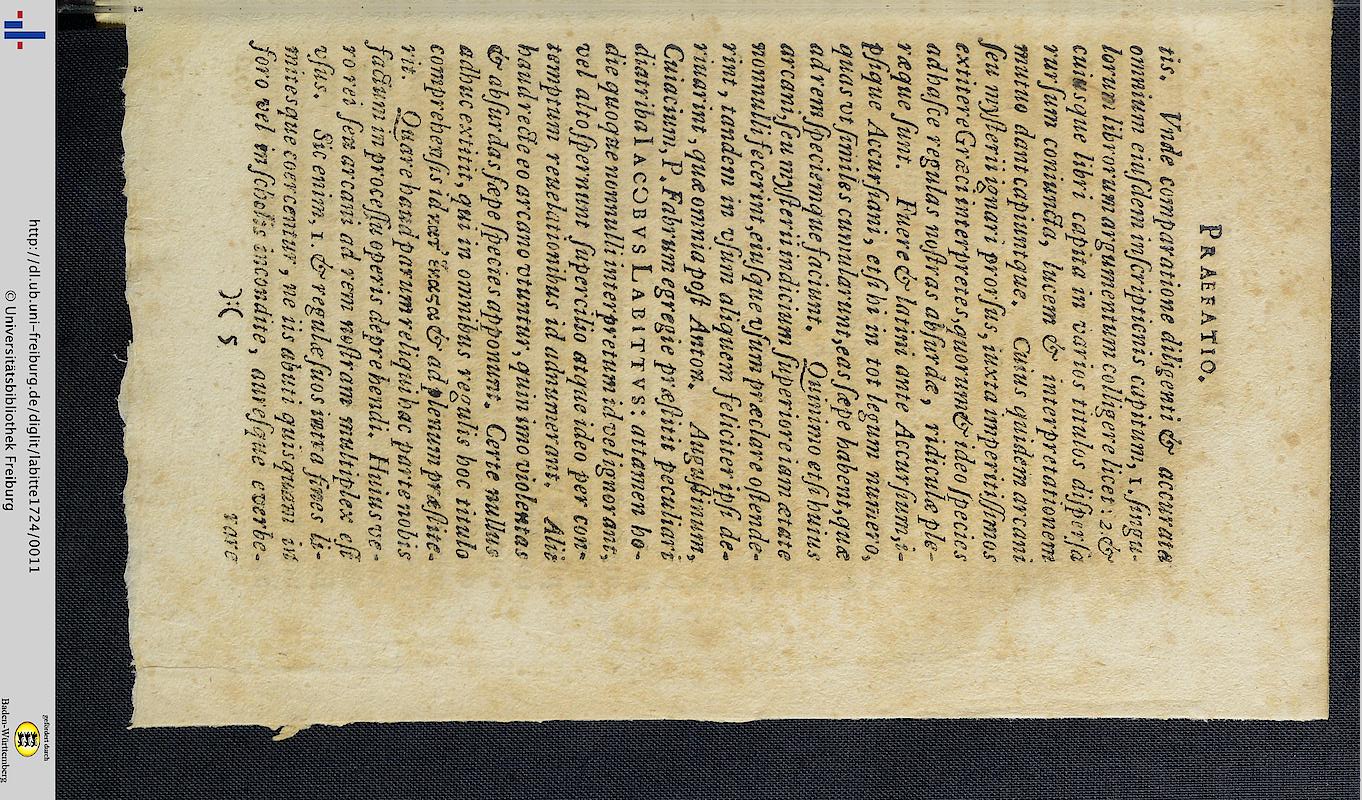 PRAEFATIO.
tis. Vnde comparatione diligenti & accurata
omnium eiusdem inscriptionis capitum, 1. singu-
lorum librorum argumentum colligere licet: 2 &
cuiusque libri capita in varios titulos dispersa
rursum coniuncta, lucem & interpretationem
mutuo dant capiuntque. Cuius quidem arcani
seu mysterii ignari prorsus, iuxta imperitissimos
extitere Græci interpretes, quorum & ideo species
ad hasse regulas nostras absurdæ, ridiculæ ple-
ræque sunt. Fuere & latini ante Accursium, i-
psique Accursiani, etsi hi in tot legum numero,
quas vt similes cumularunt, eas sæpe habent, quæ
ad rem speciemque faciunt. Quinimo etsi huius
arcani, seu mysterii indicium superiore iam ætate
nonnulli fecerint, eiusque vsum præclare ostende-
rint, tandem in vsum aliquem feliciter ipsi de-
riuarint, quæ omnia post Anton. Augustinum,
Cuiacium, P. Fabrum egregie præstitit peculiari
diatriba IACOBVS LABITTVS: attamen ho-
die quoque nonnulli interpretum id vel ignorant,
vel alto spernunt supercilio atque ideo per con-
temptum reuelationibus id adnumerant. Alii
haud recte eo arcano vtuntur, quin imo violentas
& absurdas sæpe species apponunt. Certe nullus
adhuc extitit, qui in omnibus regulis hoc titulo
comprehensis id & ad plenum præstite-
rit. Quare haud parum reliqui hac parte nobis
factum in processu operis deprehendi. Huius ve-
ro rei seu arcani ad rem nostram multiplex est
vsus. Sic enim, 1. & regulæ suos intra fines li-
mitesque coercentur, ne iis abuti quisquam in
foro vel in scholis incondite, auresque everbe-
)( 5
rare
http://dl.ub.uni-freiburg.de/diglit/labitte1724/0011
© Universitätsbibliothek Freiburg
gefördert durch
Baden-Württemberg